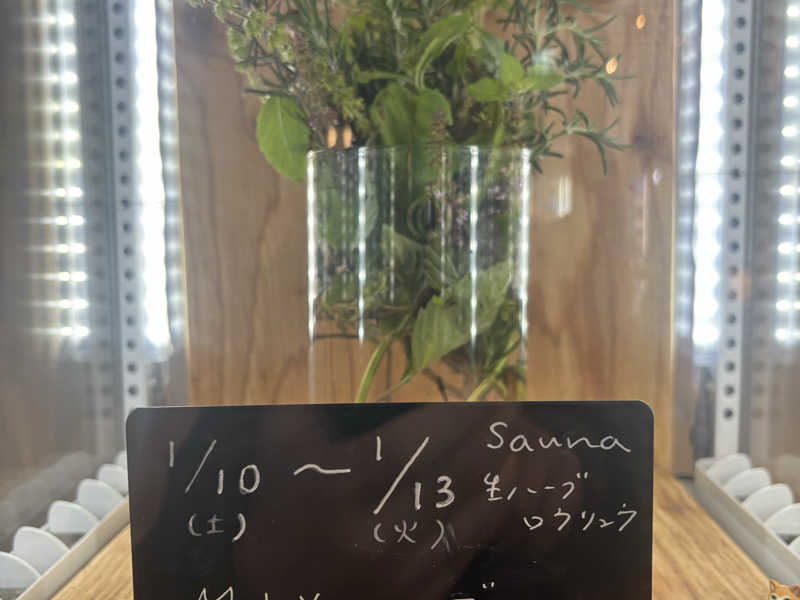 1/10 〜 1/13 Sauna
(土) (火) 生ハーブ
ロウリュウ